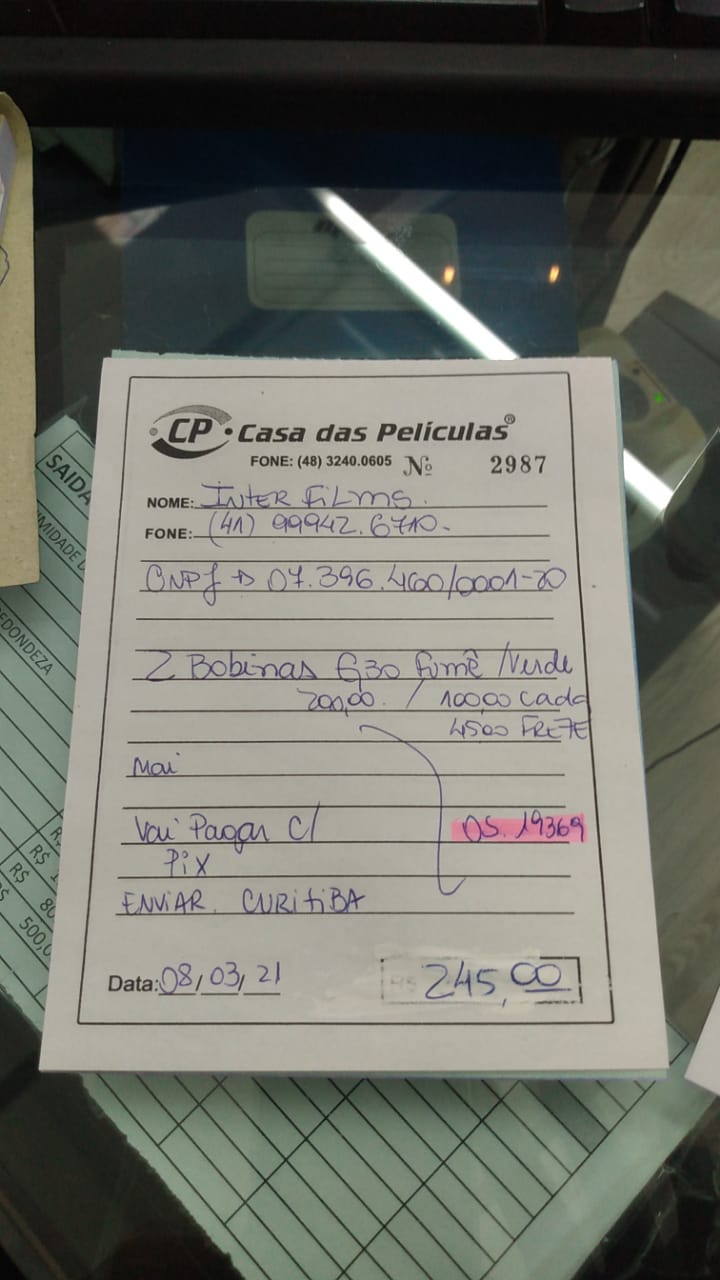 CP Casa das Películas®
FONE: (48) 3240.0605 Nº 2987
NOME: INTER FILMS.
FONE: (41) 99942.6710-
CNPJ → 07.396.460/0001-20
2 Bobinas G30 Fumê /Verde
200,00. / 100,00 cada
4500 FRETE
Mai
Vai Pagar C/
OS. 19369
Pix
ENVIAR. CURITIBA
Data: 08/03/21
R$ 245,00
SAIDA
REDONDEZA
R$
R$ 80
500,0